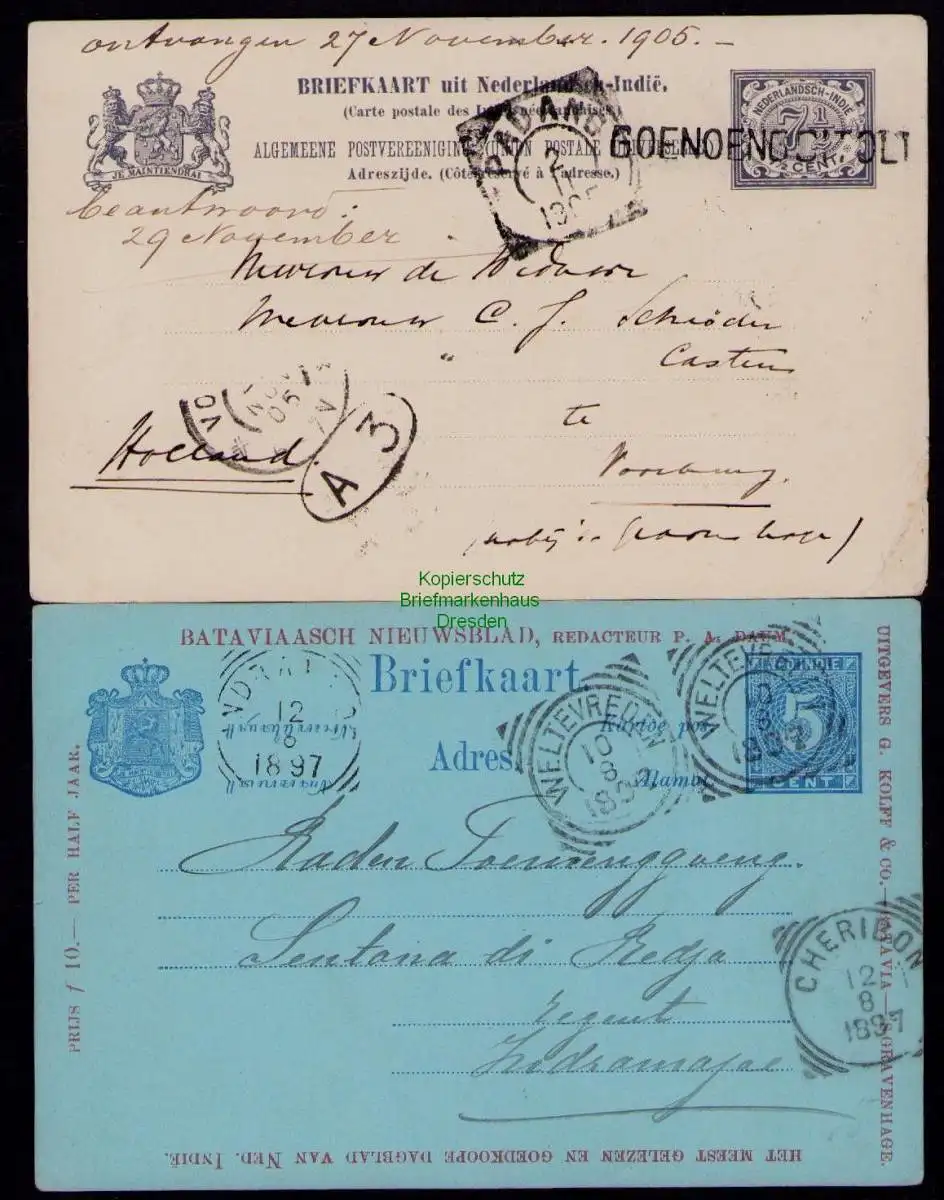 ontvangen 27 November. 1905. —
BRIEFKAART uit Nederlandsch-Indië.
(Carte postale des Indes néerlandaises.)
ALGEMEENE POSTVEREENIGING (UNION POSTALE UNIVERSELLE)
Adreszijde. (Côté réservé à l'adresse.)
JE MAINTIENDRAI
NEDERLANDSCH-INDIË
7½
CENT
PADANG
2
11
1905
GOENOENG
beantwoord:
29 November
Mevrouw de Weduwe
Mevrouw C. J. Schröder
"
te
Voorburg.
Holland.
VO
NOV
05
A 3
Kopierschutz
Briefmarkenhaus
Dresden
BATAVIAASCH NIEUWSBLAD, REDACTEUR P. A. DAUM.
Briefkaart
Kartoe pos
Adres.
Alamat
NED. INDIE
5
CENT
12
8
1897
WELTEVREDEN
10
8
1897
WELTEVREDEN
10
8
1897
Raden Toemenggoeng
Sentana di Redja
regent
Indramajoe
CHERIBON
12
8
1897
PRIJS f 10.— PER HALF JAAR.
UITGEVERS G. KOLFF & CO.—BATAVIA—'S GRAVENHAGE.
HET MEEST GELEZEN EN GOEDKOOPE DAGBLAD VAN NED. INDIË.